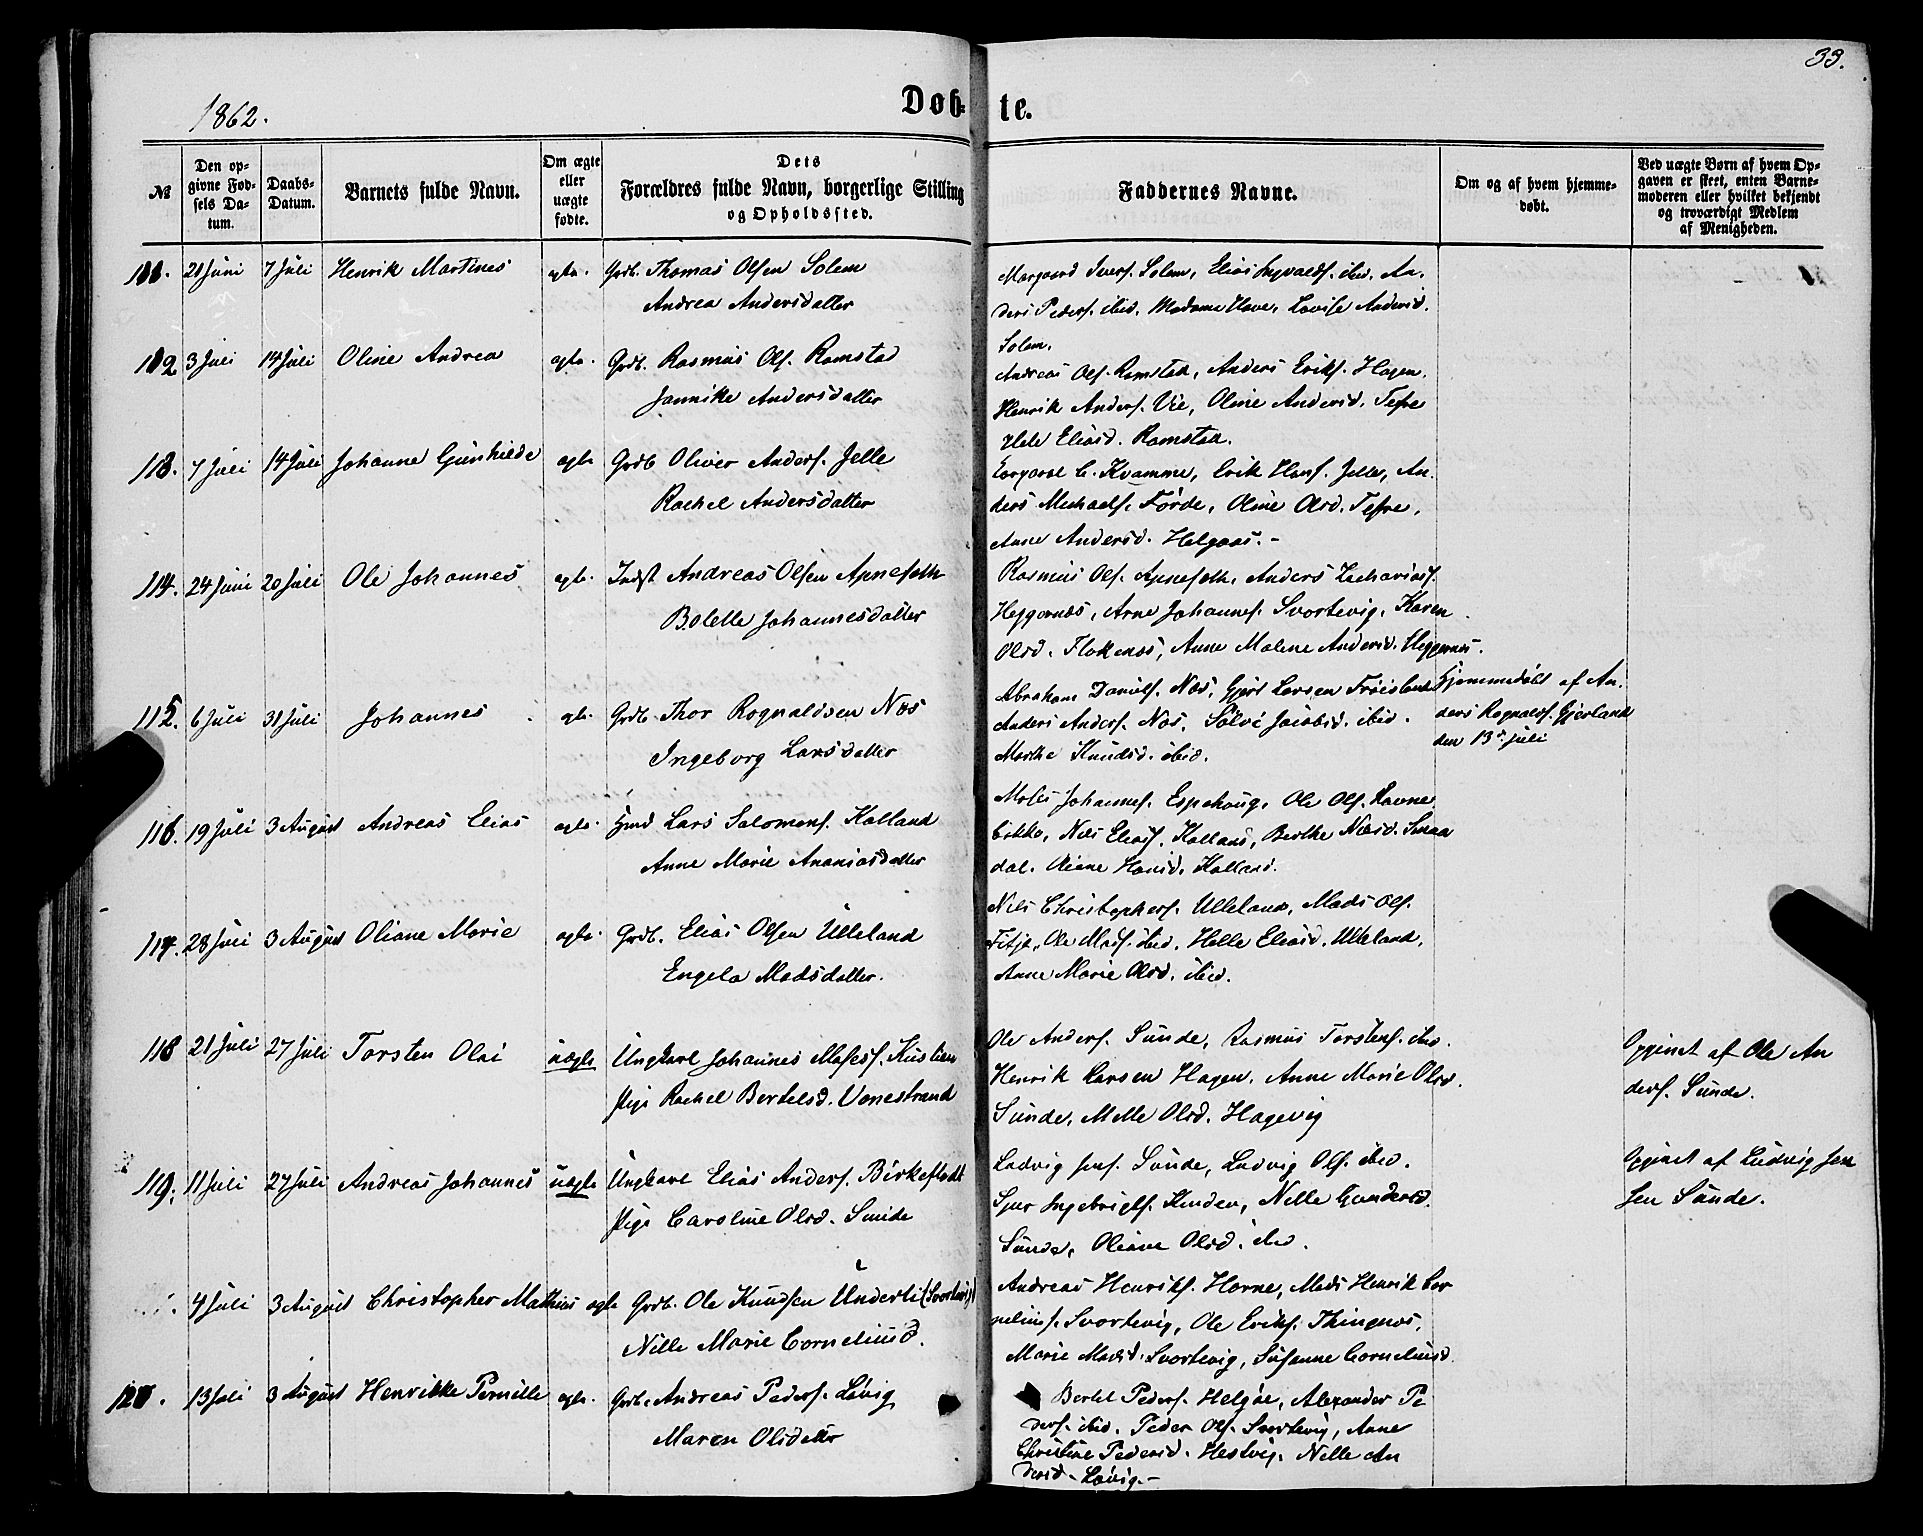 33.
1862.
Døbte.
№
Den opgivne Fødsels Datum.
Daabs-Datum.
Barnets fulde Navn.
Om ægte eller uægte fødte.
Dets Forældres fulde Navn, borgerlige Stilling og Opholdssted.
Faddernes Navne.
Om og af hvem hjemmedøbt.
Ved uægte Børn af hvem Opgaven er skeet, enten Barnemoderen eller hvilket bekjendt og troværdigt Medlem af Menigheden.
111. 21 Juni 7 Juli Henrik Martines ægte. Grdb. Thomas Olsen Solem
Andrea Andersdatter
Ivers. Solem, Elias Ingvalds. ibid. An-
ders Peders. ibid. Madame Lovise Andersd.
Solem.
112 3 Juli 14 Juli Oline Andrea ægte. Grdb. Rasmus Ols. Ramstad
Jannike Andersdatter
Andreas Ols. Ramstad, Anders Eriks. Hagen.
Henrik Anders. Vie, Oline Andersd. Tefre
Eliasd. Ramstad.
113. 7 Juli 14 Juli Johanne Gunhilde ægte Grdb Oliver Anders. Jelle
Rachel Andersdatter
C. Kvamme, Erik Hans. Jelle, An-
ders Michaels. Førde, Oline Olsd. Tefre,
Anne Andersd. Helgaas. -
114. 24 Juni 20 Juli Ole Johannes ægte. Indst Andreas Olsen Apneseth
Bolette Johannesdatter
Rasmus Ols. Apneseth, Anders Zacharias.
Heggenæs, Arne Johannes. Svortevig, Karen
Olsd. Flokenæs, Anne Malene Andersd. Heggenæs.
115. 6 Juli 31 Juli Johannes ægte. Grdb. Thor Rognaldsen Næs
Ingeborg Larsdatter
Abraham Daniels. Næs, Gjert Larsen
Anders Anders. Næs, Sølvi Jacobsd. ibid.
Marthe Knudsd. ibid.
Hjemmedøbt af An-
ders Rognalds. Gjerland
den 13de Juli
116. 19 Juli 3 August Andreas Elias ægte. Lars Salomons. Kalland
Anne Marie Ananiasdatter
Moses Johannes. Espehaug, Ole Ols. Ravne-
Nils Elias. Kalland, Berthe Nilsd. Smaa
dal. Oliane Hansd. Kalland.
117. 28 Juli 3 August Oliane Marie ægte. Grdb. Elias Olsen Ulleland
Engela Madsdatter.
Nils Christophers. Ulleland, Mads Ols.
Fitje, Ole Mads. ibid. Helle Eliasd. Ulleland,
Anne Marie Olsd. ibid.
118 21 Juli 27 Juli Torsten Olai uægte Ungkarl Johannes Moses.
Pige Rachel Bertelsd. Vonestrand
Ole Anders. Sunde, Rasmus Torstens. ibid.
Henrik Larsen Hagen. Anne Marie Olsd.
Sunde, Mette Olsd. Hagevig
Opgivet af Ole An
ders. Sunde.
119. 11 Juli 27 Juli Andreas Johannes uægte Ungkarl Elias Anders. Birkeflodt
Pige Caroline Olsd. Sunde
Ludvig Jens. Sunde, Ludvig Ols. ibid.
Sjur Ingebrigts. Kinden, Nille Gundersd.
Sunde, Oliane Olsd. ibid.
Opgivet af Ludvig Jen
sen Sunde.
4 Juli 3 August Christopher Mathias ægte Grdb. Ole Knudsen Underli (Svortevig)
Nille Marie Corneliusd.
Andreas Henriks. Horne, Mads Henrik Cor
nelius. Svortevig, Ole Eriks. Thingnæs,
Marie Madsd. Svortevig, Susanne Corneliusd.
120. 13 Juli 3 August Henrikke Pernille ægte. Grdb. Andreas Peders. Løvig
Maren Olsdatter
Bertel Peders. Helgøe, Alexander Pe
ders. ibid. Peder Ols. Svortevig, Anne
Christine Pedersd. Hestvig. Nille An
dersd. Løvig. -